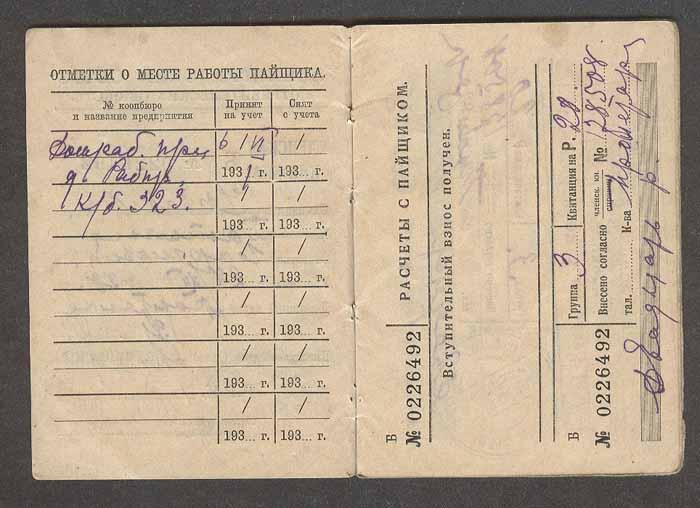 ОТМЕТКИ О МЕСТЕ РАБОТЫ ПАЙЩИКА.
№ коопбюро и название предприятия
Принят на учет
Снят с учета
6 / VI /
193 1 г. 193... г.
К/б. 323. / /
193... г. 193... г.
/ /
193... г. 193... г.
/ /
193... г. 193... г.
/ /
193... г. 193... г.
/ /
193... г. 193... г.
Б
№ 0226492
РАСЧЕТЫ С ПАЙЩИКОМ.
Вступительный взнос получен.
Б
№ 0226492
Группа 3 Квитанция на Р. 20
Внесено согласно членск. кн. справки № 128508
тал. К-ва
Двадцать р.